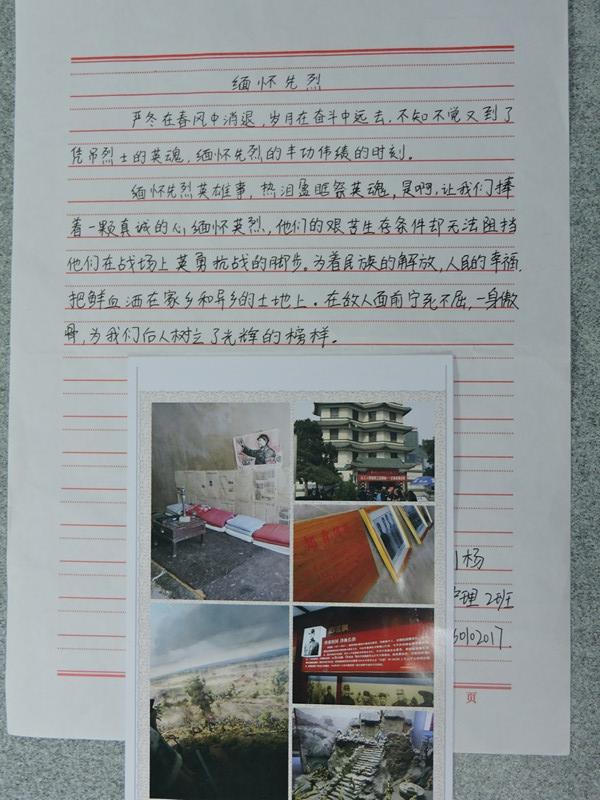 缅怀先烈
严冬在春风中消退，岁月在奋斗中远去，不知不觉又到了
凭吊烈士的英魂，缅怀先烈的丰功伟绩的时刻。
缅怀先烈英雄事，热泪盈眶祭英魂，是啊，让我们捧
着一颗真诚的心缅怀英烈，他们的艰苦生存条件却无法阻挡
他们在战场上英勇抗战的脚步。为着民族的解放，人民的幸福，
把鲜血洒在家乡和异乡的土地上。在敌人面前宁死不屈，一身傲
骨，为我们后人树立了光辉的榜样。
杨
护理 2班
50102017
页